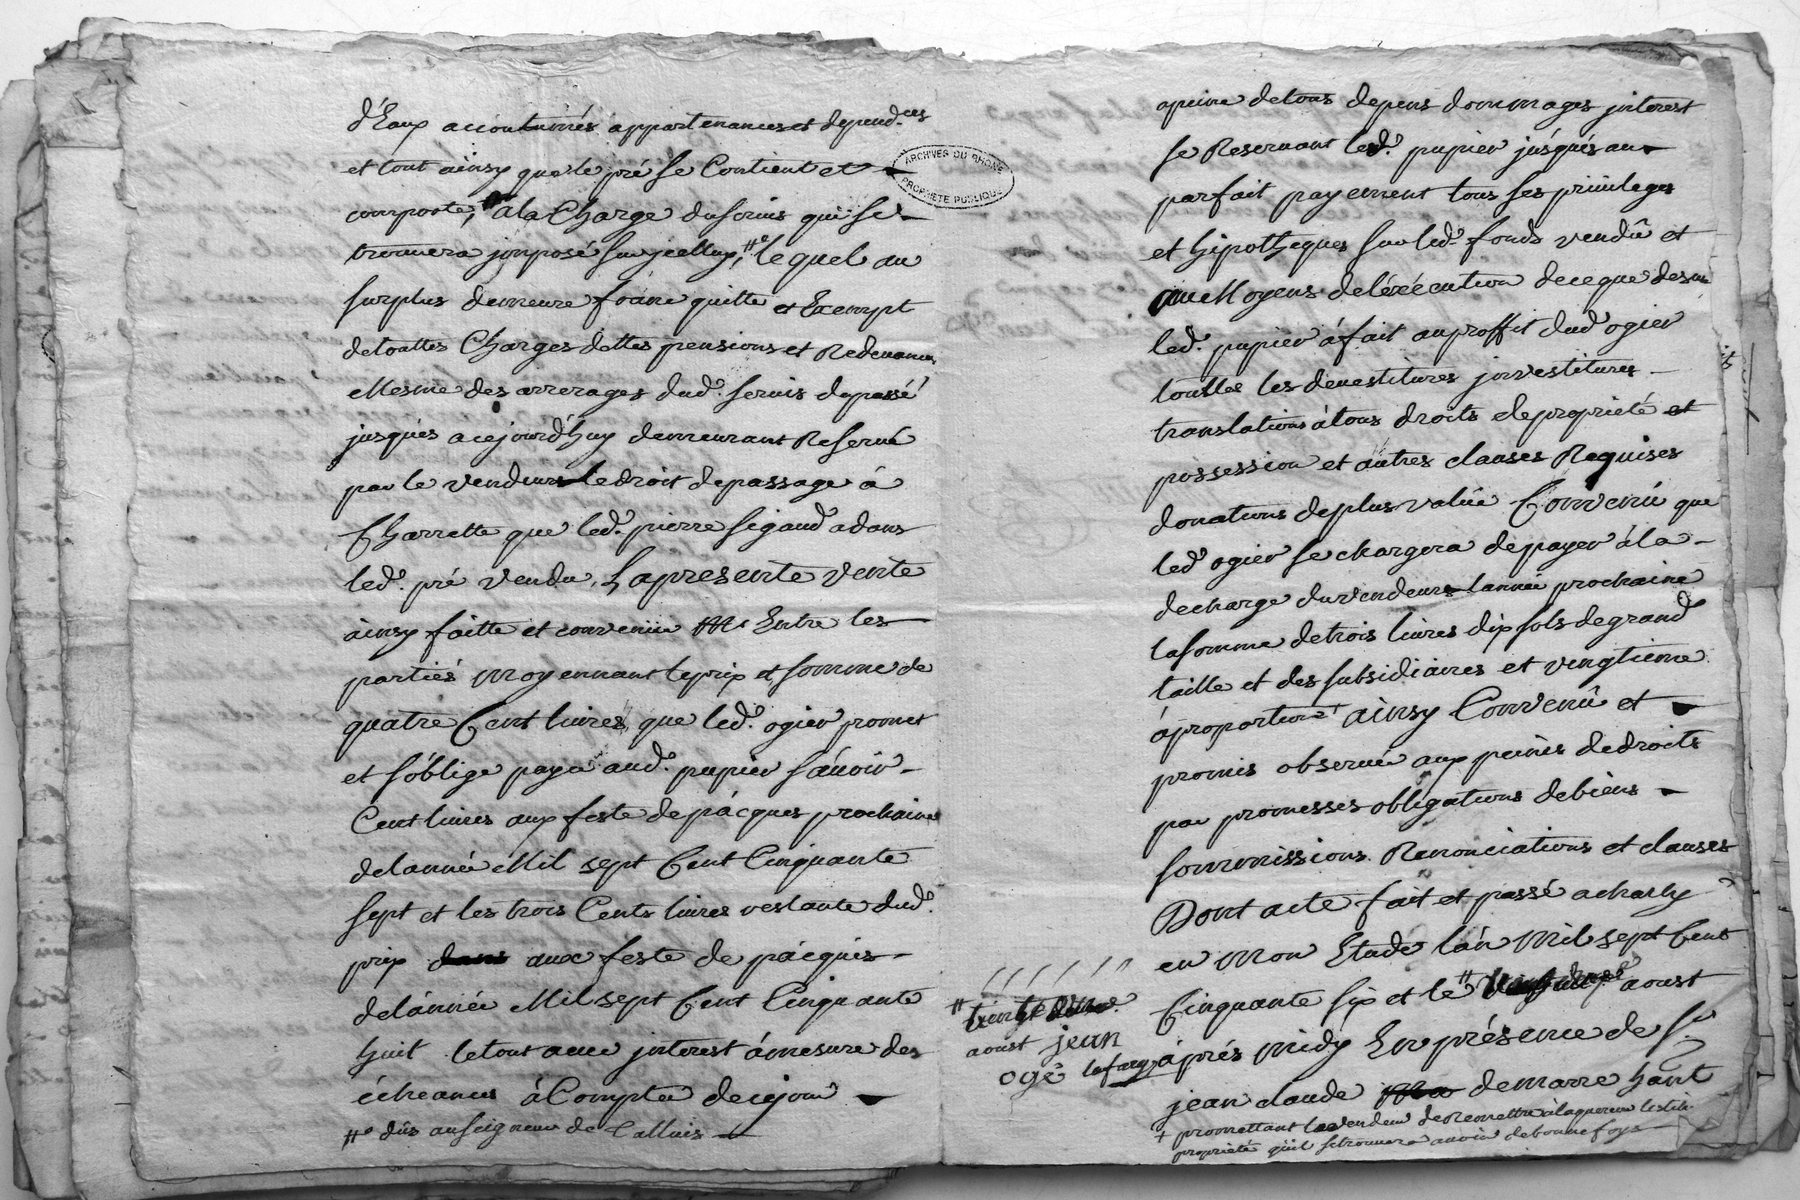 d'Eaux accoutumés appartenances et dépend.ces
et tout ainsy que le pré se Contient et
comporte, a la Charge du servis qui se
trouvera imposé sur jcelluy, #e lequel au
surplus demeure franc quitte et Exempt
de touttes Charges dettes pensions et Redevances
Mesme des arrerages dud. servis du passé
jusques a cejourd'huy demeurant Reservé
par le vendeur le droit de passage à
Charrette que led. pierre sigaud a dans
led. pré vendu, La presente vente
ainsy faitte et convenüe Entre les
partiés moyennant le prix et somme de
quatre Cent livres, que led. ogier promet
et s'oblige payer aud. pupier sçavoir
Cent livres aux feste de pâcques prochaine
de lannée Mil sept Cent Cinquante
sept et les trois Cents livres restante dud.
prix aux feste de pâcques
de lánnée Mil sept Cent Cinquante
huit le tout avec jnterest à mesure des
échéances à Compter de cejour
#e dûs au seigneur de Talluis
ARCHIVES DU RHONE
PROPRIÉTÉ PUBLIQUE
a peine de tous depens dommages jnterest
se Reservant led. pupier jusques au
parfait payement tous ses privileges
et hipotheques sur led. fonds vendû et
au Moyens de léxécution de ce que dessus
led. pupier á fait au proffit dud. ogier
touttes les devestitures jnvestitures
translations á tous droits de proprieté et
possession et autres clauses Requises
donations de plus valüe Convenû que
led. ogier se chargera de payer à la
decharge du vendeur lannée prochaine
la somme de trois livres dix sols de grand
taille et des subsidiaires et vingtieme
á proportion ainsy Convenû et
promis observer aux peines de droits
par promesses obligations de biens
sommissions Renonciations et clauses
Dont acte fait et passé a charly
en mon Etude lán Mil sept Cent
Cinquante six et le # aoust
áprés midy En présence de Sr
jean claude demarre haut
# trente
aoust jean
ogé lafarge
+ promettant le vendeur de Remettre à laquereur les titres
proprieté quil se trouvera avoir de bonne foys